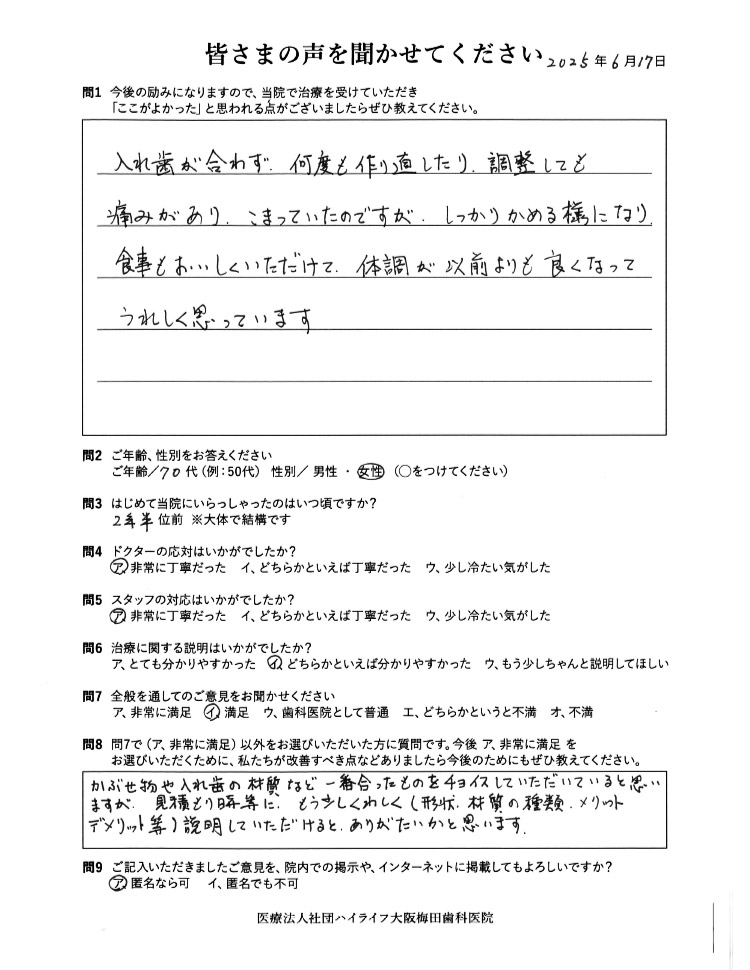 皆さまの声を聞かせてください 2025年6月17日
問1 今後の励みになりますので、当院で治療を受けていただき
「ここがよかった」と思われる点がございましたらぜひ教えてください。
入れ歯が合わず、何度も作り直したり、調整しても
痛みがあり、こまっていたのですが、しっかりかめる様になり、
食事もおいしくいただけて、体調が以前よりも良くなって
うれしく思っています
問2 ご年齢、性別をお答えください
ご年齢/70代(例:50代) 性別/ 男性 ・ 女性 (○をつけてください)
問3 はじめて当院にいらっしゃったのはいつ頃ですか?
2年半位前 ※大体で結構です
問4 ドクターの応対はいかがでしたか?
ア、非常に丁寧だった イ、どちらかといえば丁寧だった ウ、少し冷たい気がした
問5 スタッフの対応はいかがでしたか?
ア、非常に丁寧だった イ、どちらかといえば丁寧だった ウ、少し冷たい気がした
問6 治療に関する説明はいかがでしたか?
ア、とても分かりやすかった イ、どちらかといえば分かりやすかった ウ、もう少しちゃんと説明してほしい
問7 全般を通してのご意見をお聞かせください
ア、非常に満足 イ、満足 ウ、歯科医院として普通 エ、どちらかというと不満 オ、不満
問8 問7で(ア、非常に満足)以外をお選びいただいた方に質問です。今後 ア、非常に満足 を
お選びいただくために、私たちが改善すべき点などありましたら今後のためにもぜひ教えてください。
かぶせ物や入れ歯の材質など一番合ったものをチョイスしていただいていると思い
ますが、見積もり時等に、もう少しくわしく(形状、材質の種類、メリット
デメリット等)説明していただけると、ありがたいかと思います。
問9 ご記入いただきましたご意見を、院内での掲示や、インターネットに掲載してもよろしいですか?
ア、匿名なら可 イ、匿名でも不可
医療法人社団ハイライフ大阪梅田歯科医院